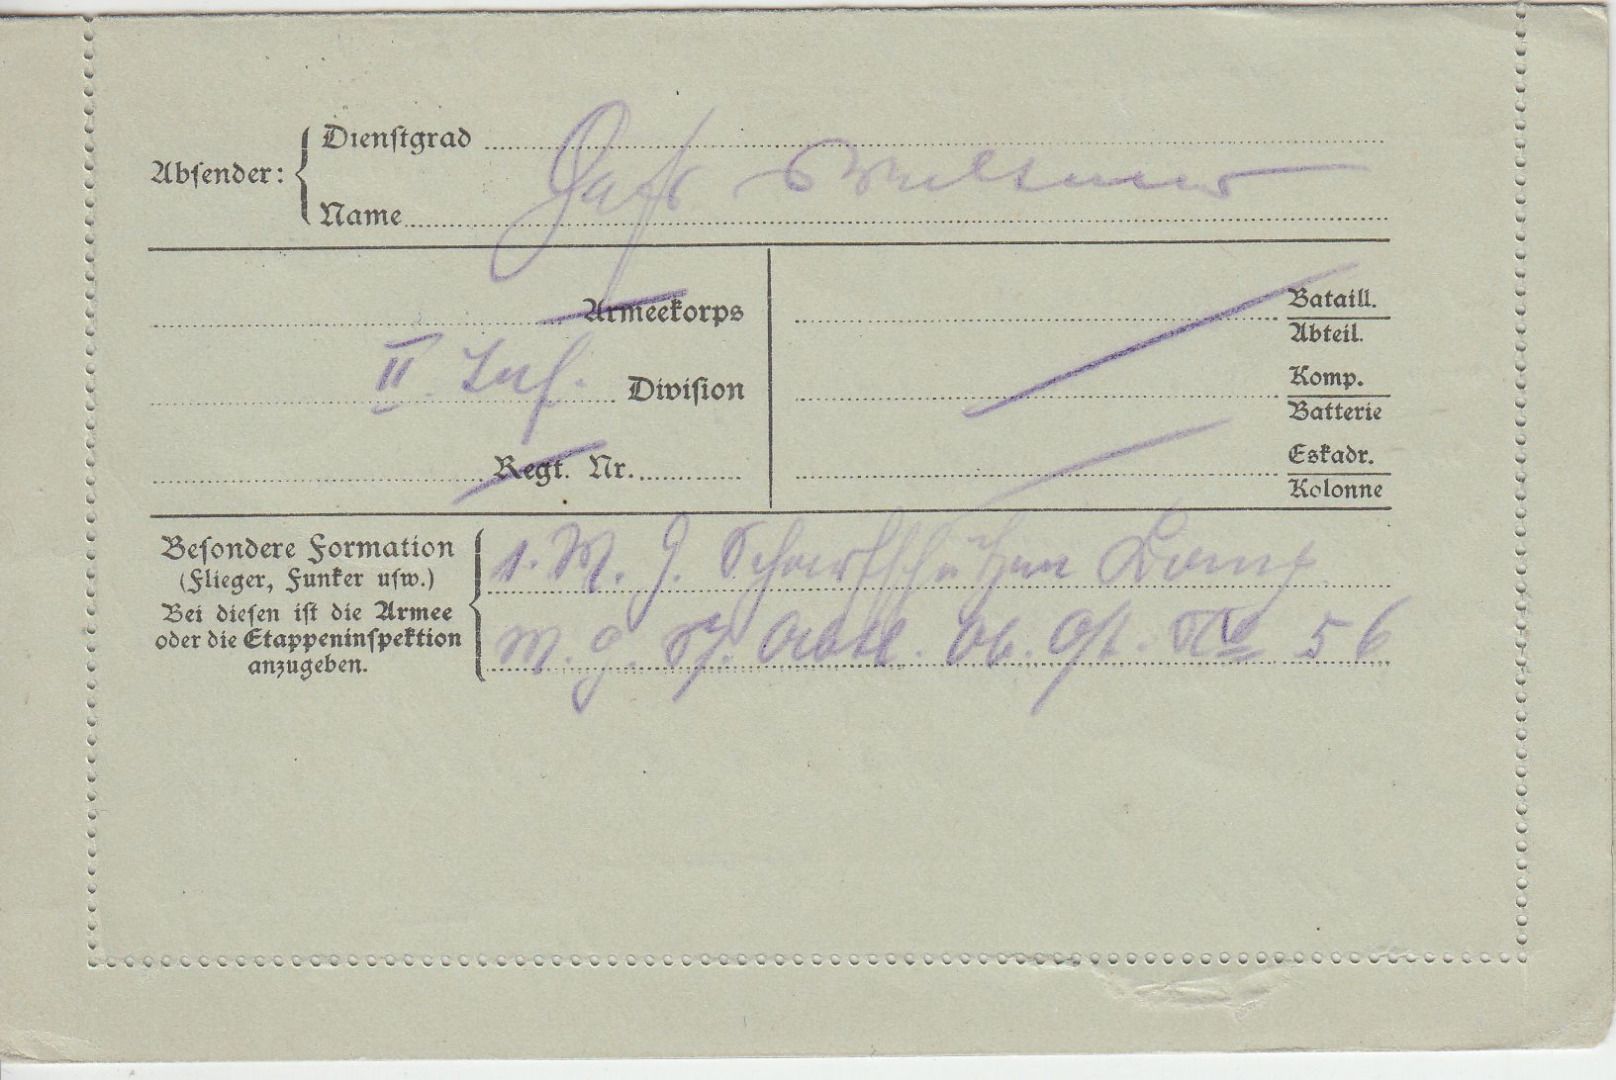 Absender:
Dienstgrad
Name
Gefr
Armeekorps
II. Inf. Division
Regt. Nr.
Bataill.
Abteil.
Komp.
Batterie
Eskadr.
Kolonne
Besondere Formation
(Flieger, Funker usw.)
Bei diesen ist die Armee
oder die Etappeninspektion
anzugeben.
1. M. G. Scharfschützen Komp.
M. G. Abtl. Nº 56